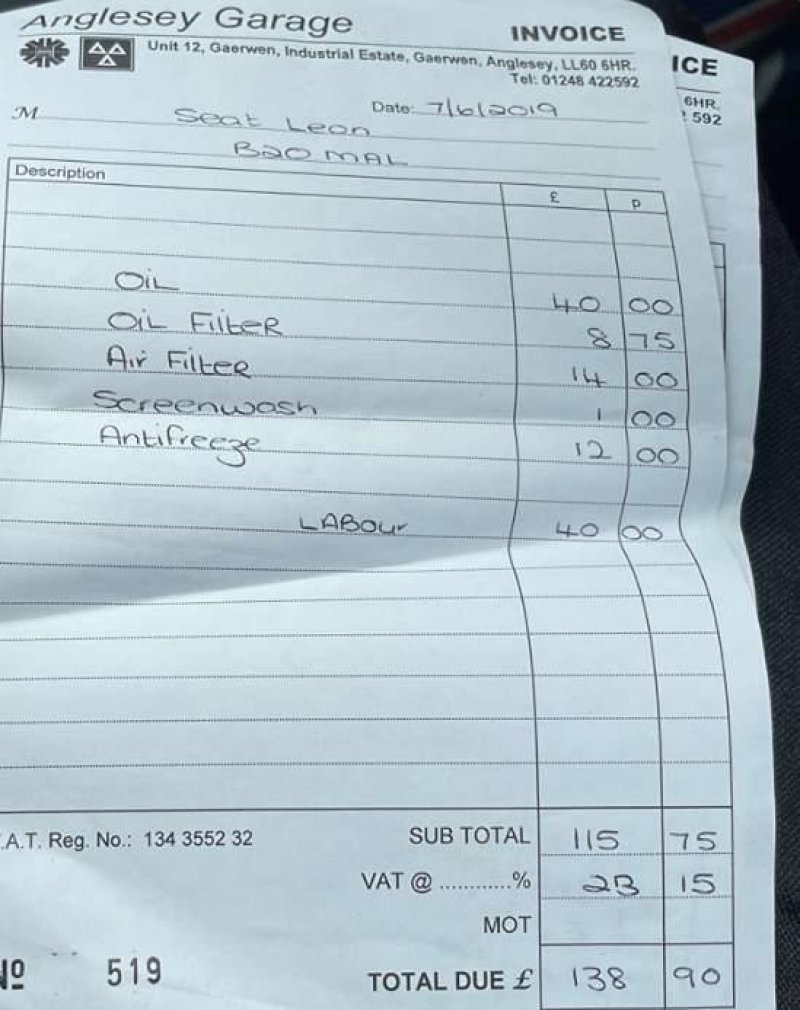 Anglesey Garage
INVOICE
Unit 12, Gaerwen, Industrial Estate, Gaerwen, Anglesey, LL60 6HR.
Tel: 01248 422592
M Seat Leon Date: 7/6/2019
B20 MAL
Description £ p
OiL 40 00
OiL FilteR 8 75
Air FilteR 14 00
Screenwash 1 00
Antifreeze 12 00
LABour 40 00
.A.T. Reg. No.: 134 3552 32 SUB TOTAL 115 75
VAT @ ............% 23 15
MOT
No 519 TOTAL DUE £ 138 90
ICE
6HR.
592